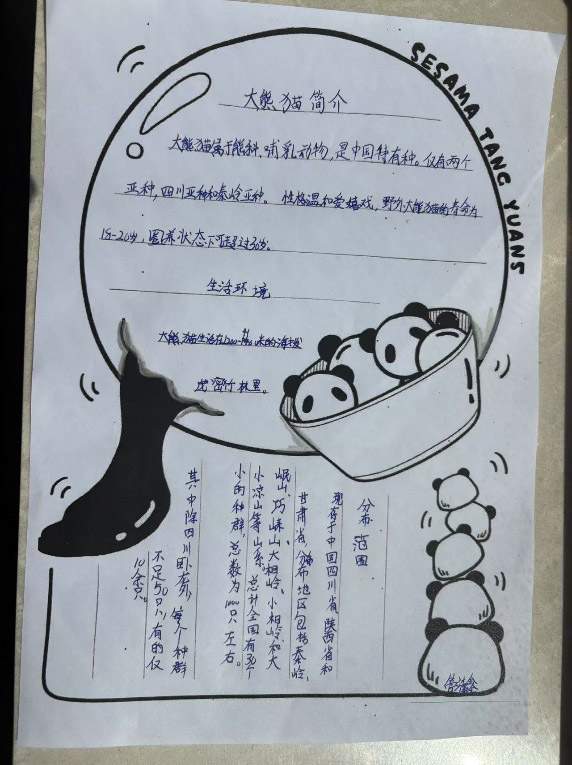 SESAMA TANG YUANS
大熊猫简介
大熊猫属于熊科,哺乳动物,是中国特有种。仅有两个
亚种,四川亚种和秦岭亚种。性格温和爱嬉戏,野外大熊猫的寿命为
18-20岁,圈养状态下可超过30岁。
生活环境
大熊猫生活在米的海拔
密竹林里。
分布范围
现存于中国四川省、陕西省和
甘肃省。分布地区包括秦岭、
岷山、邛崃山、大相岭、小相岭和大
小凉山等山系。总计全国有30个
小的种群,总数为1000只左右。
其中除四川卧龙外,每个种群
不足50只,有的仅
10余只。